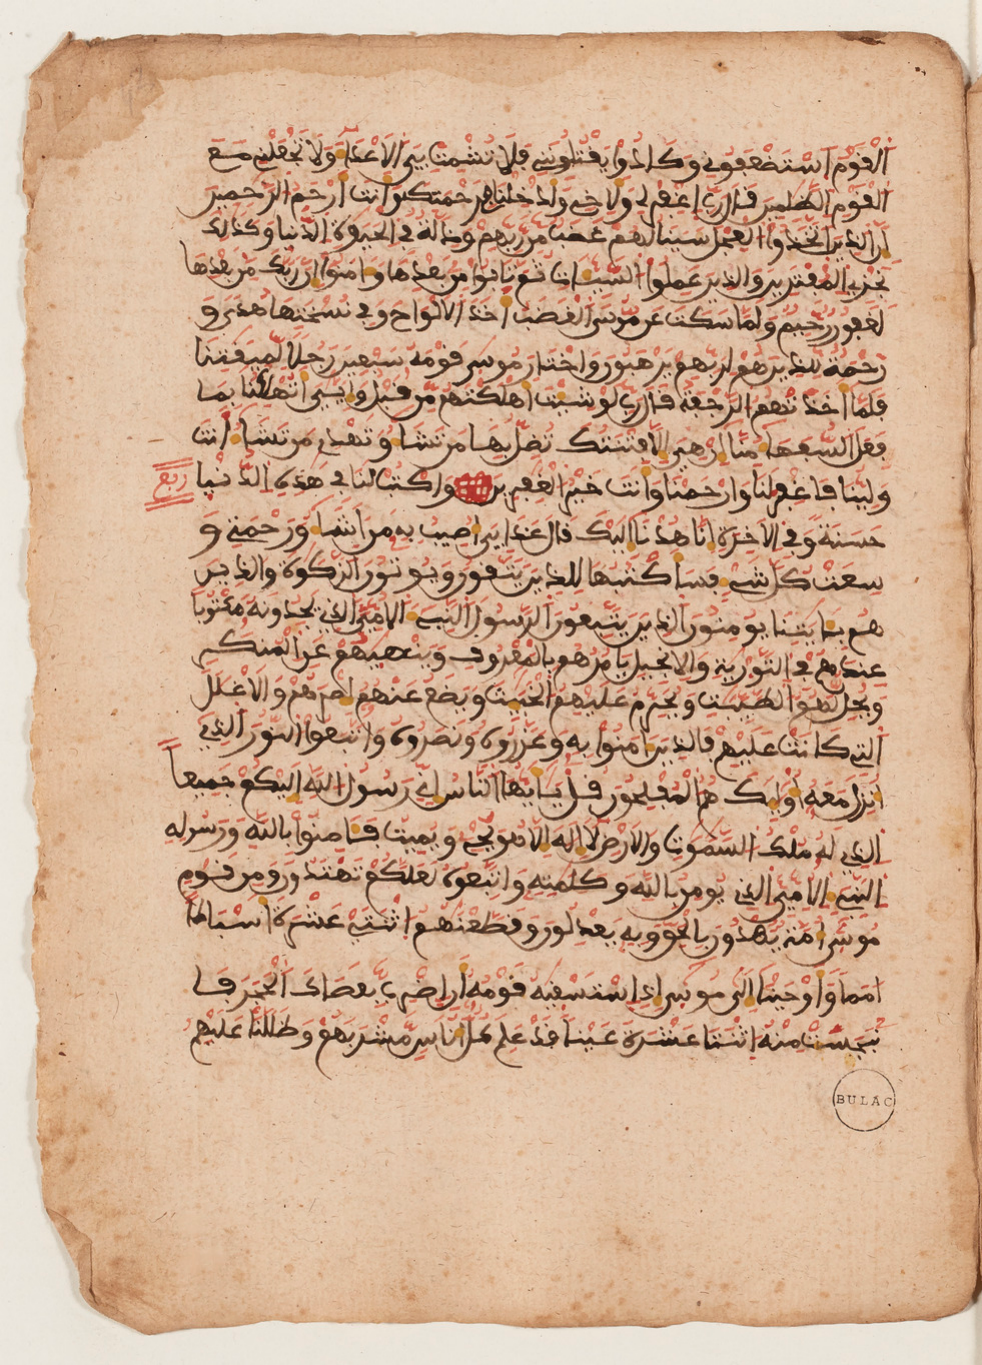 القوم استضعفوني وكادوا يقتلونني فلا تشمت بي الاعداء ولا تجعلني مع
القوم الظلمين قال رب اغفر لي ولاخي وادخلنا في رحمتك وانت ارحم الرحمين
ان الذين اتخذوا العجل سينالهم غضب من ربهم وذلة في الحيوة الدنيا وكذلك
نجزي المفترين والذين عملوا السيات ثم تابوا من بعدها وامنوا ان ربك من بعدها
لغفور رحيم ولما سكت عن موسى الغضب اخذ الالواح وفي نسختها هدى و
رحمة للذين هم لربهم يرهبون واختار موسى قومه سبعين رجلا لميقتنا
فلما اخذتهم الرجفة قال رب لو شيت اهلكتهم من قبل وايي اتهلكنا بما
فعل السفهاء منا ان هي الا فتنتك تضل بها من تشاء وتهدي من تشاء انت
ولينا فاغفر لنا وارحمنا وانت خير الغفرين واكتب لنا في هذه الدنيا
ربع
حسنة وفي الاخرة انا هدنا اليك قال عذابي اصيب به من اشاء ورحمتي و
سعت كل شيء فساكتبها للذين يتقون ويوتون الزكوة والذين
هم بـايتنا يومنون الذين يتبعون الرسول النبي الامي الذي يجدونه مكتوبا
عندهم في التورية والانجيل يامرهم بالمعروف وينهيهم عن المنكر
ويحل لهم الطيبت ويحرم عليهم الخبيث ويضع عنهم اصرهم والاغلل
التي كانت عليهم فالذين امنوا به وعزروه ونصروه واتبعوا النور الذي
انزل معه اوليك هم المفلحون قل يـايها الناس اني رسول الله اليكم جميعا
الذي له ملك السموت والارض لا اله الا هو يحي ويميت فـامنوا بالله ورسوله
النبي الامي الذي يومن بالله وكلمته واتبعوه لعلكم تهتدون ومن قوم
موسى امة يهدون بالحق وبه يعدلون وقطعنهم اثنتي عشرة اسباطا
امما واوحينا الى موسى اذ استسقيه قومه ان اضرب بعصاك الحجر فا
نبجست منه اثنتا عشرة عينا قد علم كل اناس مشربهم وظللنا عليهم
BULAC